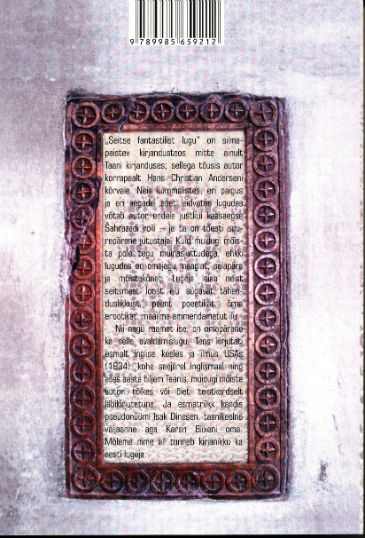 9 789985 659212
„Seitse fantastilist lugu" on silma-
paistev kirjandusteos mitte ainult
Taani kirjanduses; sellega tõusis autor
korrapealt Hans Christian Anderseni
kõrvale. Neis kummalistes, eri paigus
ja eri aegade aset leidvates lugudes
võtab autor endale justkui kaasaegse
Šahrazadi rolli – ja ta on tõesti su-
repärane jutustaja. Kuid muidugi mõis-
ta pole tegu muinasjuttudega, ehkki
lugudes on omajagu maagiat, salapära
ja mõistukõnet. Lugeja leiab neist
seitsmest loost elu sügavat tähen-
duslikkust, peent poeetikat, õrna
erootikat, maailma ammendamatut ilu.
Nii nagu raamat ise, on omapärane
ka selle avaldamislugu. Teos kirjutati
esmalt inglise keeles ja ilmus USAs
(1934), kohe seejärel Inglismaal ning
alles aasta hiljem Taanis, muidugi mõista
autori tõlkes või õiet teistkordselt
läbikirjutatuna. Ja esmatrükk kandis
pseudonüümi Isak Dinesen, taanikeelne
väljaanne aga Karen Blixeni oma.
Mõlema nime all tunneb kirjanikku ka
eesti lugeja.